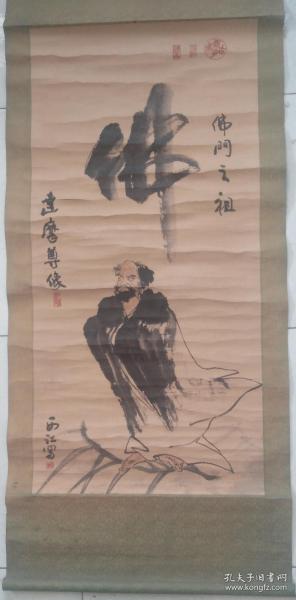 佛門之祖
佛
達摩尊像
西江寫
孔夫子旧书网
www.kongfz.com